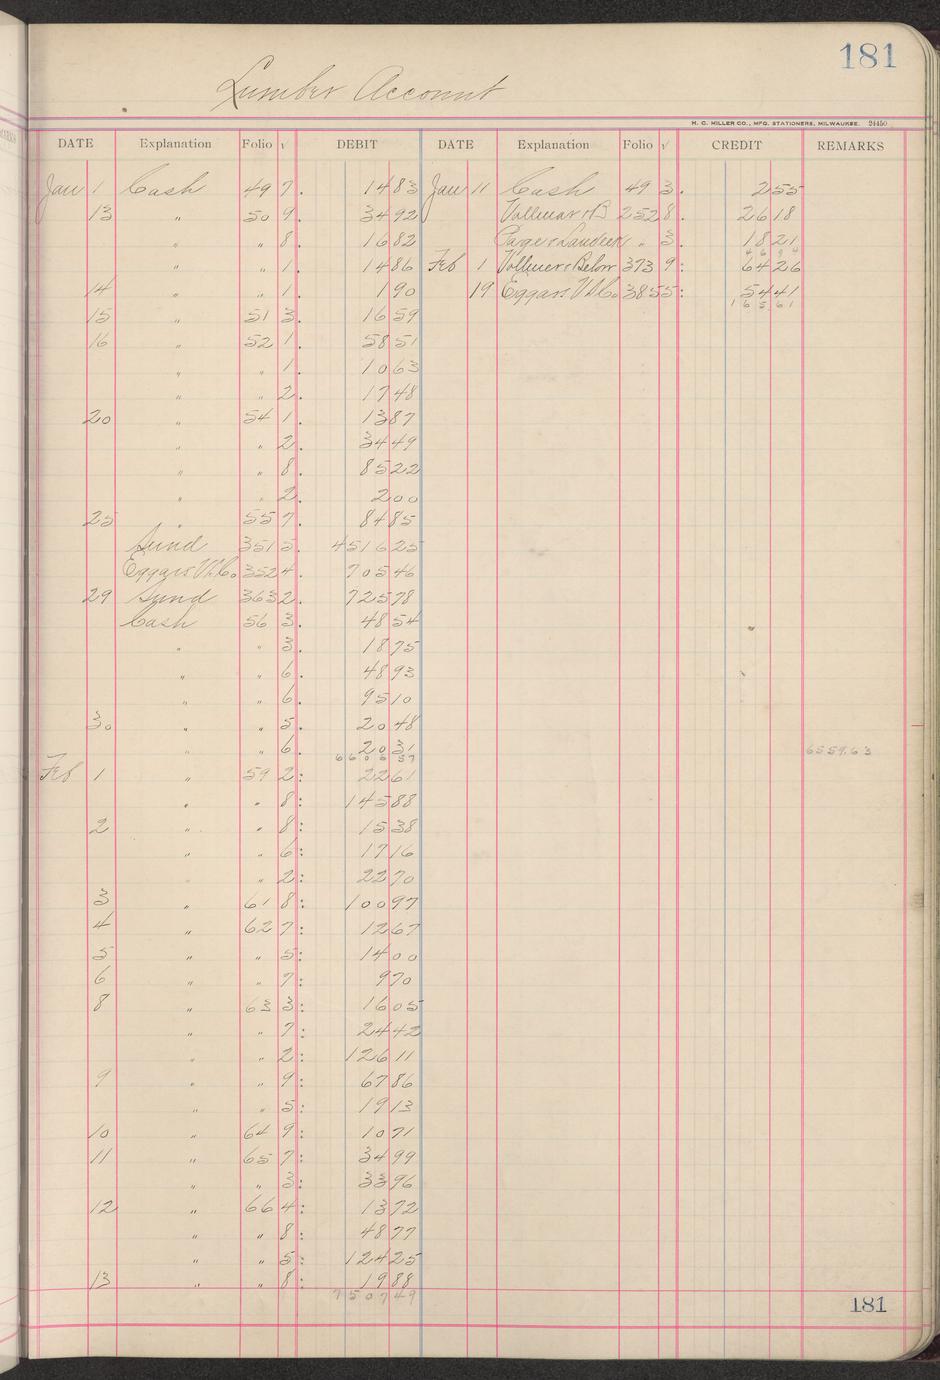 181
Lumber Account
H. C. MILLER CO., MFG. STATIONERS, MILWAUKEE. 24450
DATE Explanation Folio √ DEBIT DATE Explanation Folio √ CREDIT REMARKS
Jan 1 Cash 49 7. 1483 Jan 11 Cash 49 3. 255
13 " 50 9. 3492 Vollmar & B 252 8. 2618
" " 8. 1682 " 3. 1821
4694
" " 1. 1486 Feb 1 Vollmer & Below 373 9: 6426
14 " " 1. 190 19 Eggars V. Co. 385 5: 5441
16561
15 " 51 3. 1659
16 " 52 1. 5851
" " 1. 1063
" " 2. 1748
20 " 54 1. 1387
" " 2. 3449
" " 8. 8522
" " 2. 200
25 " 55 7. 8485
Sund 351 5. 451625
Eggars V. Co. 352 4. 70546
29 Sund 363 2. 72578
Cash 56 3. 4854
" " 3. 1875
" " 6. 4893
" " 6. 9510
30 " " 5. 2048
" " 6. 2031 6559.63
660657
Feb 1 " 59 2: 2261
" " 8: 14588
2 " " 8: 1538
" " 6: 1716
" " 2: 2270
3 " 61 8: 10097
4 " 62 7: 1267
5 " " 5: 1400
6 " " 7: 970
8 " 63 3: 1605
" " 7: 2442
" " 2: 12611
9 " " 9: 6786
" " 5: 1913
10 " 64 9: 1071
11 " 65 7: 3499
" " 3: 3396
12 " 66 4: 1372
" " 8: 4877
" " 5: 12425
13 " " 8: 1988
750749
181